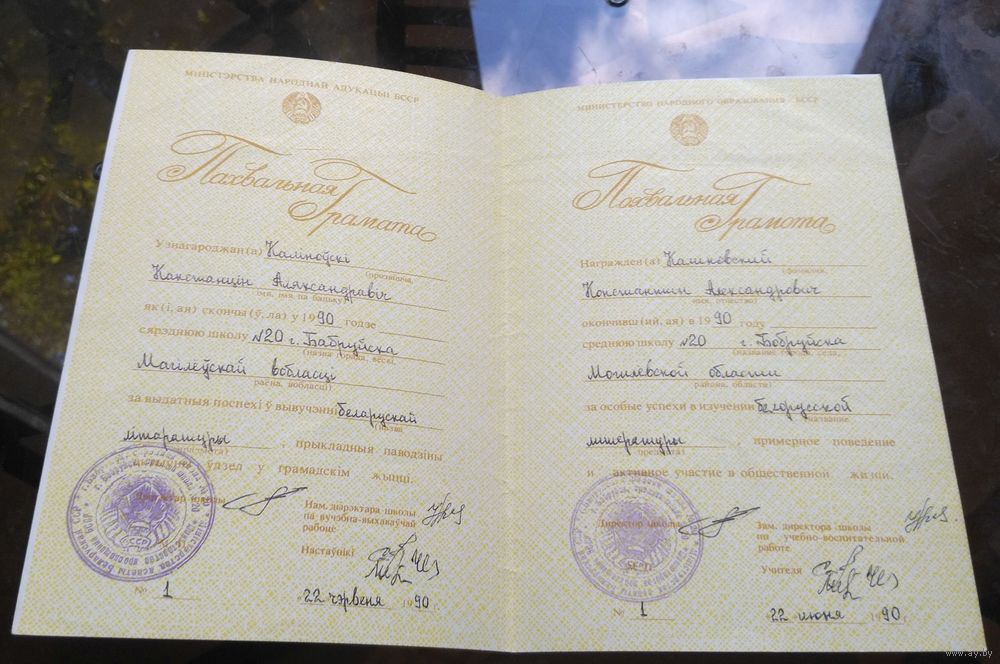 МІНІСТЭРСТВА НАРОДНАЙ АДУКАЦЫІ БССР
Пахвальная
Грамата
Узнагароджан(а) Каліноўскі
(прозвішча,
Канстанцін Аляксандравіч
імя, імя па бацьку)
які(і, ая) скончы(ў, ла) у 1990 годзе
сярэднюю школу №20 г. Бабруйска
(назва горада, вёскі,
Магілёўскай вобласці
раёна, вобласці)
за выдатныя поспехі ў вывучэнні беларускай
(назва
літаратуры , прыкладныя паводзіны
прадмета)
удзел у грамадскім жыцці.
Дырэктар школы
Нам. дырэктара школы
па вучэбна-выхаваўчай
рабоце
Настаўнікі
№ 1
22 чэрвеня 1990 г.
МИНИСТЕРСТВО НАРОДНОГО ОБРАЗОВАНИЯ БССР
Похвальная
Грамота
Награжден(а)
(фамилия,
Константин Александрович
имя, отчество)
окончивш(ий, ая) в 1990 году
среднюю школу №20 г. Бобруйска
(название города, села,
Могилевской области
района, области)
за особые успехи в изучении белорусской
(название
литературы , примерное поведение
предмета)
и активное участие в общественной жизни.
Директор школы
Зам. директора школы
по учебно-воспитательной
работе
Учителя
№ 1
22 июня 1990 г.
www.ay.by